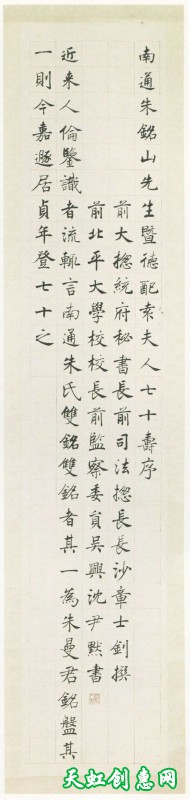 南通朱銘山先生暨德配索夫人七十壽序
前大捴統府秘書長前司法捴長長沙章士釗撰
前北平大學校校長前監察委員吳興沈尹默書
近来人倫鑒識者流輒言南通朱氏雙銘雙銘者其一為朱曼君銘盤其
一則今嘉遯居貞年登七十之
天虹创惠网